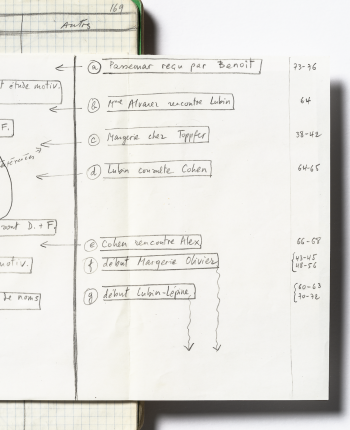 169
Autres
a Passemar reçu par Benoît 73-76
t étude motiv.
b Mme Alvarez rencontre Lubin 64
F.
c Margerie chez Töppfer 38-42
d Lubin consulte Cohen 64-65
vont D. + F.
e Cohen rencontre Alex 66-58
f début Margerie Olivier 43-45
48-56
motiv.
g début Lubin-Lépine 60-63
70-72
de noms